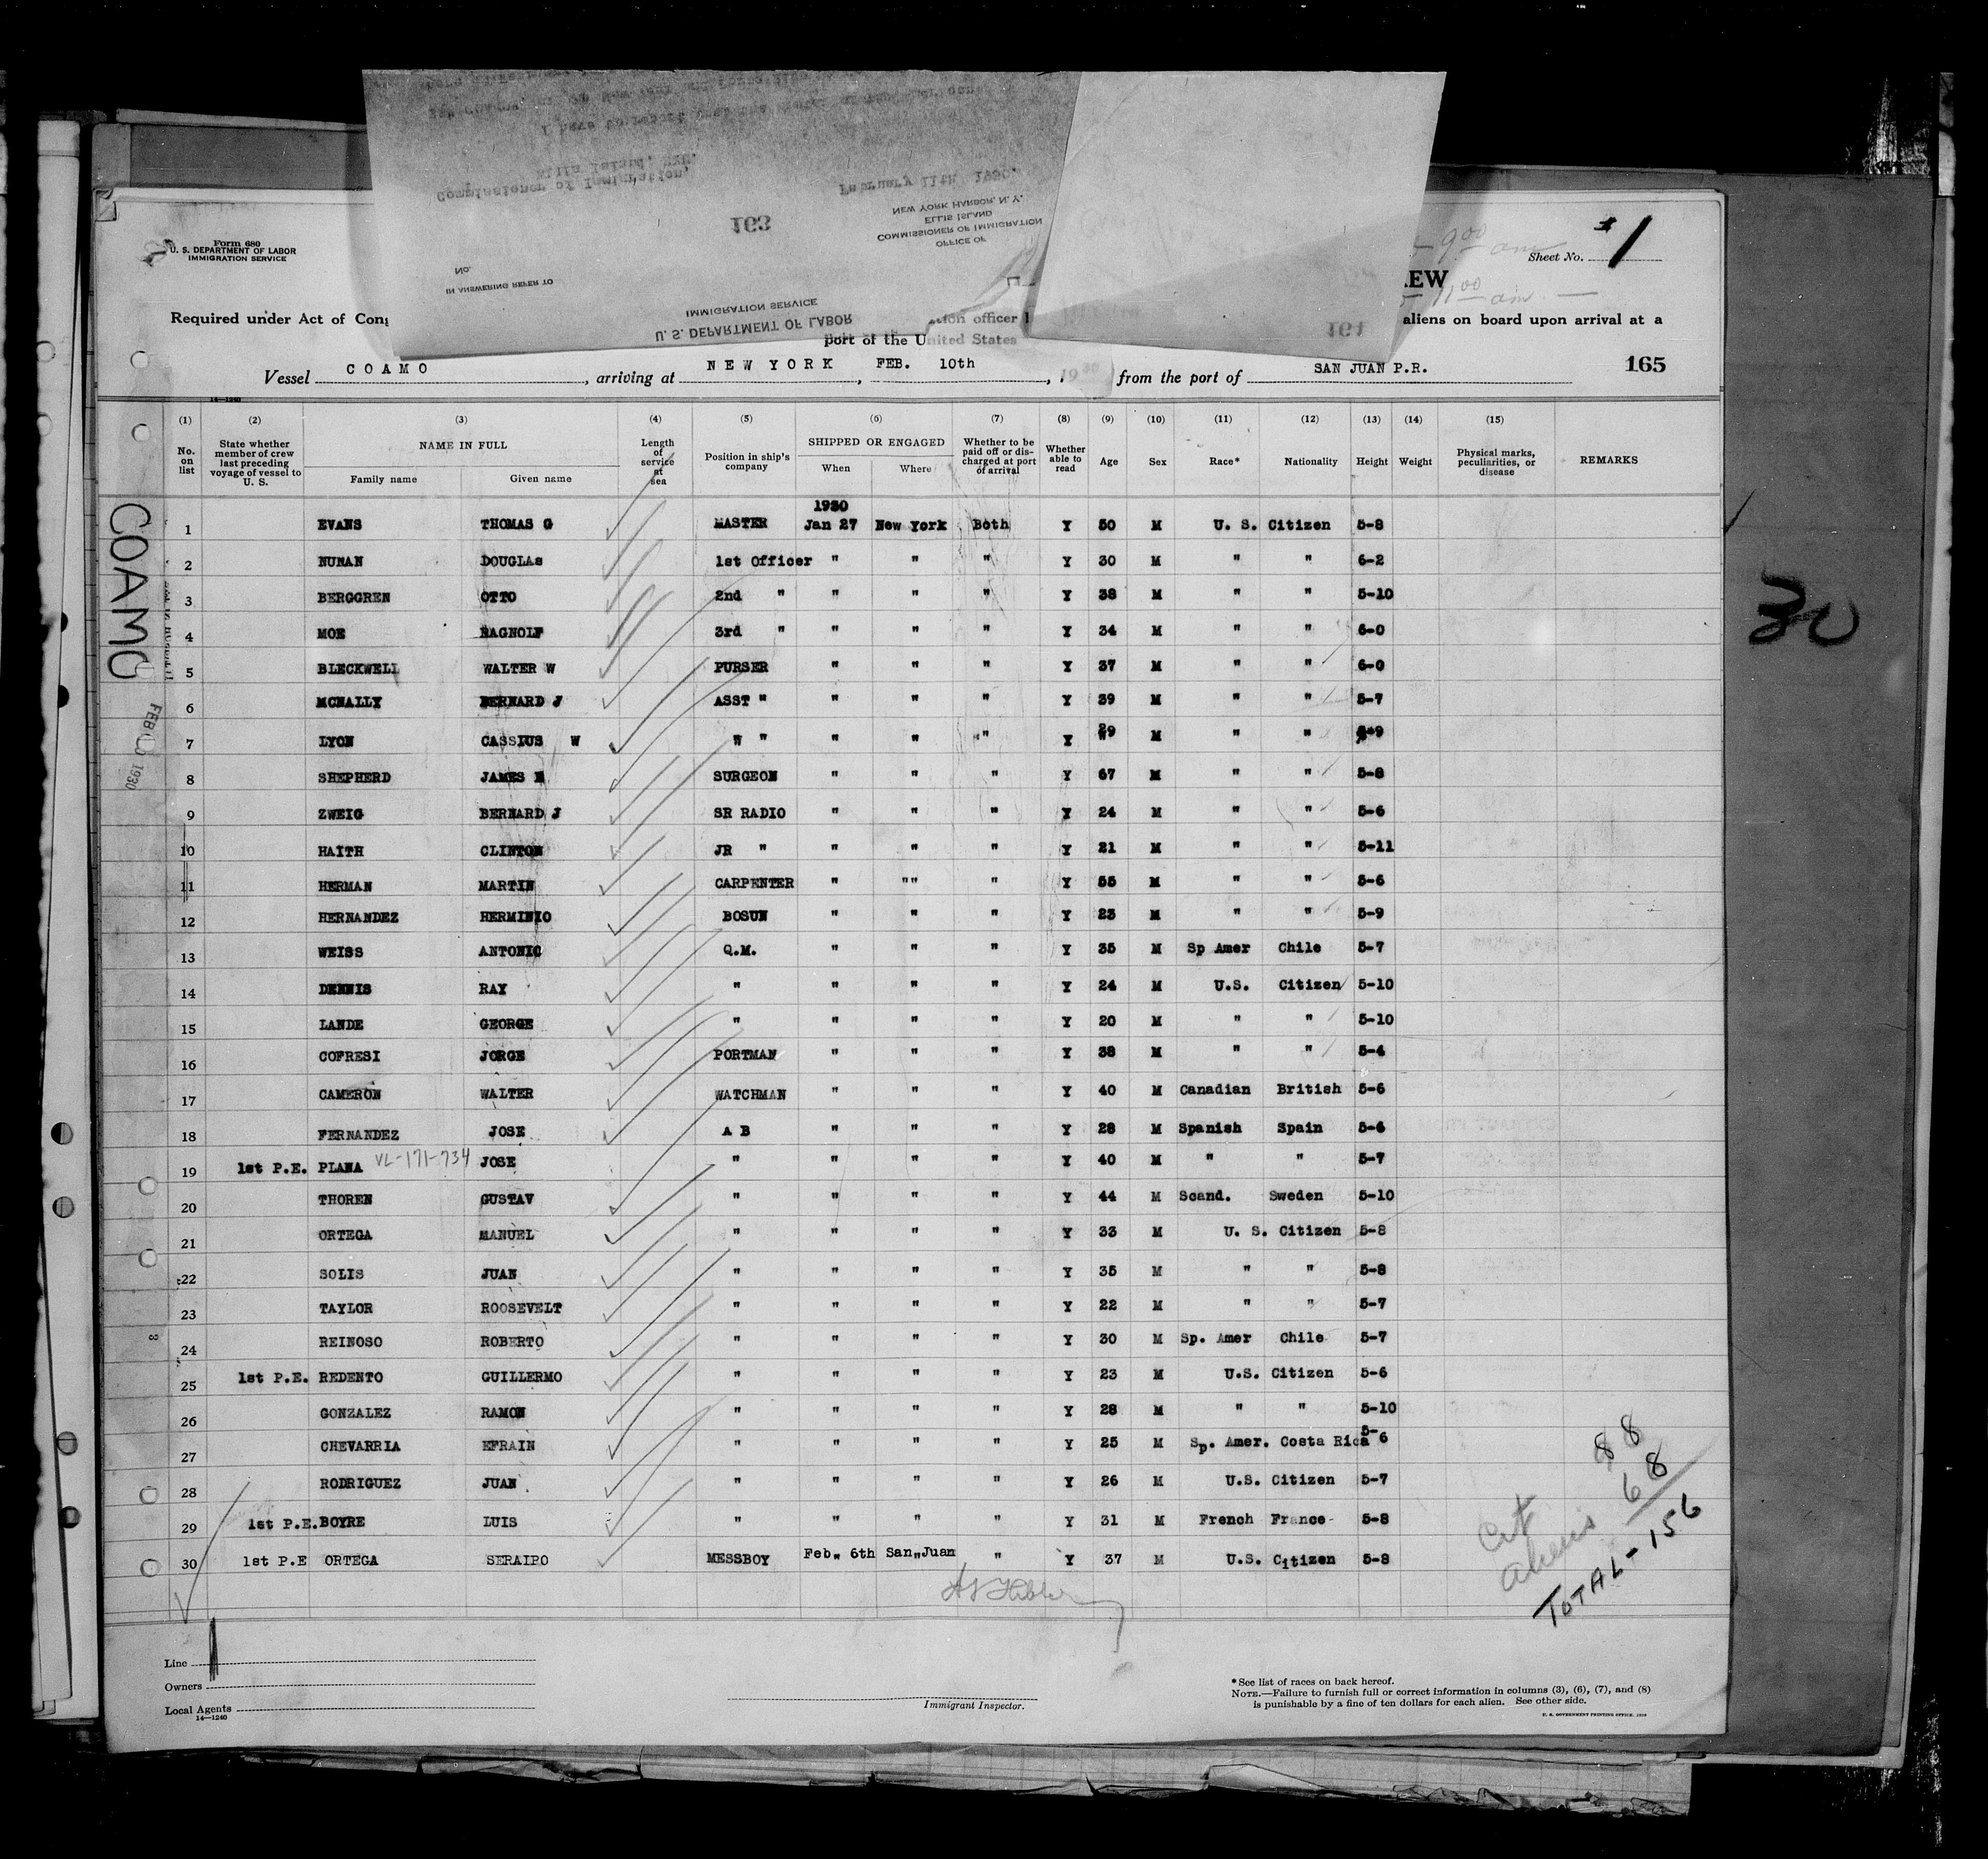 163
February 11th 1930.
Commissioner of Immigration,
Ellis Island, N.Y.
NEW YORK HARBOR, N. Y.
ELLIS ISLAND
COMMISSIONER OF IMMIGRATION
OFFICE OF
No.
IN ANSWERING REFER TO
IMMIGRATION SERVICE
U. S. DEPARTMENT OF LABOR
161
Form 680
U. S. DEPARTMENT OF LABOR
IMMIGRATION SERVICE
9 00 am
Sheet No. 1
EW
11 00 am
Required under Act of Cong
tion officer
aliens on board upon arrival at a
port of the United States
165
Vessel COAMO, arriving at NEW YORK, FEB. 10th, 1930 from the port of SAN JUAN P.R.
14—1240
(1) (2) (3) (4) (5) (6) (7) (8) (9) (10) (11) (12) (13) (14) (15)
No. on list
State whether member of crew last preceding voyage of vessel to U. S.
NAME IN FULL
Family name Given name
Length of service at sea
Position in ship's company
SHIPPED OR ENGAGED
When Where
Whether to be paid off or discharged at port of arrival
Whether able to read
Age Sex Race* Nationality Height Weight
Physical marks, peculiarities, or disease
REMARKS
1930
1 EVANS THOMAS G MASTER Jan 27 New York Both Y 50 M U. S. Citizen 5-8
2 NUMAN DOUGLAS 1st Officer " " " Y 30 M " " 6-2
3 BERGGREN OTTO 2nd " " " " Y 38 M " " 5-10
4 MOE RAGNOLF 3rd " " " " Y 34 M " " 6-0
5 BLECKWELL WALTER W PURSER " " " Y 37 M " " 6-0
6 MCNALLY BERNARD J ASST " " " " Y 39 M " " 5-7
7 LYON CASSIUS W " " " " " Y 29 M " " 9
8 SHEPHERD JAMES SURGEON " " " Y 67 M " " 5-8
9 ZWEIG BERNARD J SR RADIO " " " Y 24 M " " 5-6
10 HAITH CLINTON JR " " " " Y 21 M " " 5-11
11 HERMAN MARTIN CARPENTER " "" " Y 55 M " " 5-6
12 HERNANDEZ HERMINIO BOSUN " " " Y 23 M " " 5-9
13 WEISS ANTONIO Q.M. " " " Y 35 M Sp Amer Chile 5-7
14 DENNIS RAY " " " " Y 24 M U.S. Citizen 5-10
15 LANDE GEORGE " " " " Y 20 M " " 5-10
16 COFRESI JORGE PORTMAN " " " Y 38 M " " 5-4
17 CAMERON WALTER WATCHMAN " " " Y 40 M Canadian British 5-6
18 FERNANDEZ JOSE A B " " " Y 28 M Spanish Spain 5-6
19 1st P.E. PLANA VL-171-734 JOSE " " " " Y 40 M " " 5-7
20 THOREN GUSTAV " " " " Y 44 M Scand. Sweden 5-10
21 ORTEGA MANUEL " " " " Y 33 M U. S. Citizen 5-8
22 SOLIS JUAN " " " " Y 35 M " " 5-8
23 TAYLOR ROOSEVELT " " " " Y 22 M " " 5-7
24 REINOSO ROBERTO " " " " Y 30 M Sp. Amer Chile 5-7
25 1st P.E. REDENTO GUILLERMO " " " " Y 23 M U.S. Citizen 5-6
26 GONZALEZ RAMON " " " " Y 28 M " " 5-10
27 CHEVARRIA EFRAIN " " " " Y 25 M Sp. Amer. Costa Rica 5-6
28 RODRIGUEZ JUAN " " " " Y 26 M U.S. Citizen 5-7
29 1st P.E. BOYRE LUIS " " " " Y 31 M French France 5-8
30 1st P.E ORTEGA SERAIPO MESSBOY Feb. 6th San Juan " Y 37 M U.S. Citizen 5-8
COAMO
FEB 10 1930
30
cit 88
aliens 68
TOTAL - 156
Line
Owners
Local Agents
14—1240
Immigrant Inspector.
*See list of races on back hereof.
NOTE.—Failure to furnish full or correct information in columns (3), (6), (7), and (8)
is punishable by a fine of ten dollars for each alien. See other side.